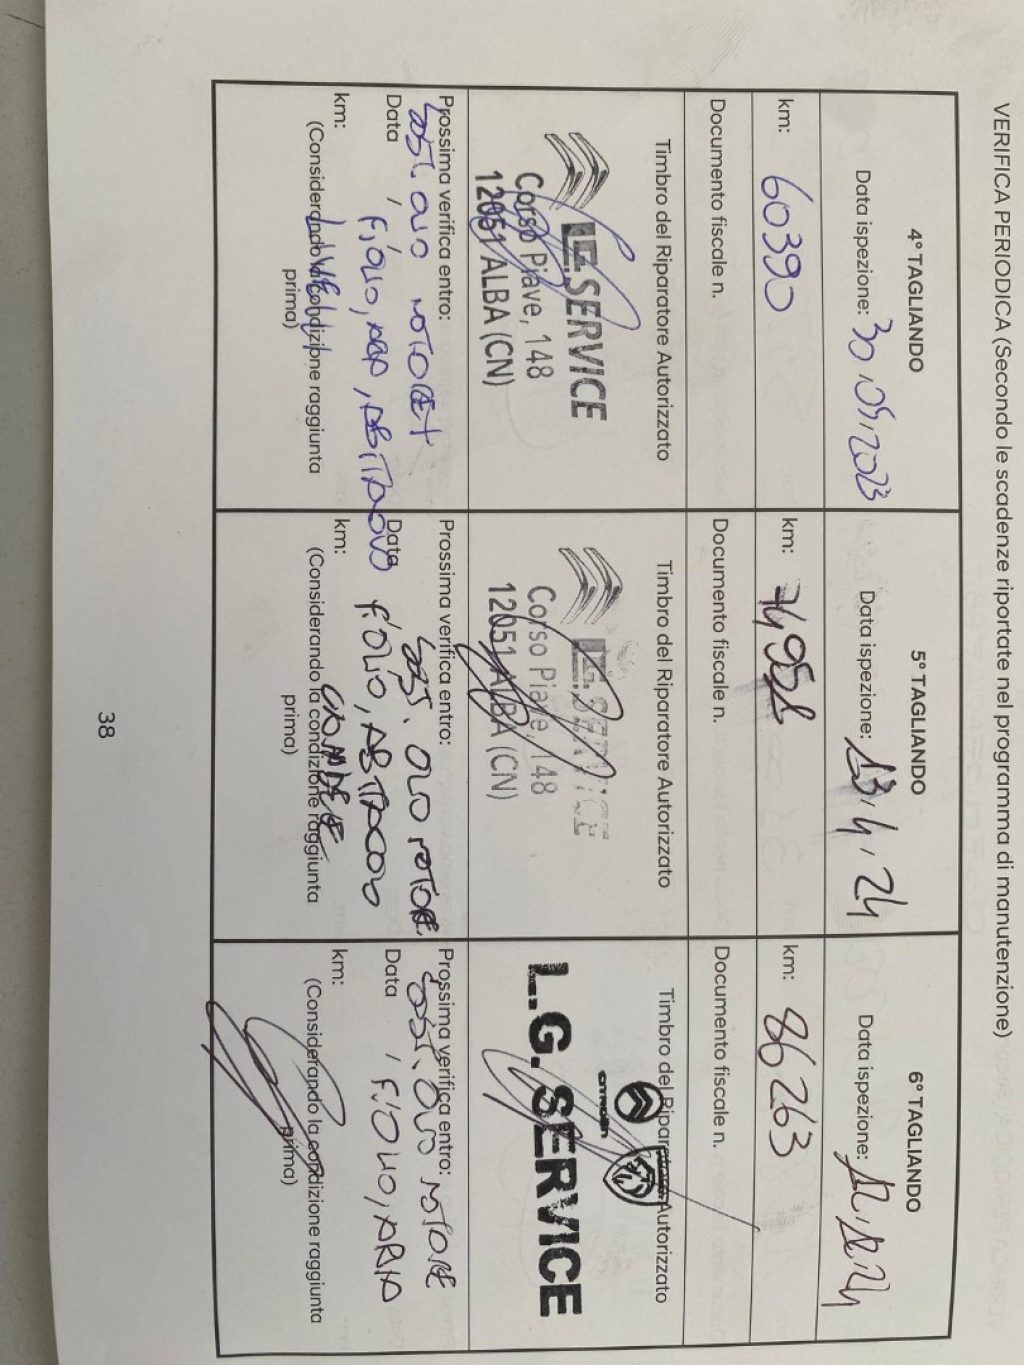 VERIFICA PERIODICA (Secondo le scadenze riportate nel programma di manutenzione)
4° TAGLIANDO
Data ispezione: 30,05,2023
km: 60390
Documento fiscale n.
Timbro del Riparatore Autorizzato
L.G. SERVICE
Corso Piave, 148
12051 ALBA (CN)
Prossima verifica entro:
SOST. OLIO MOTORE +
Data
F.OLIO, ABITACOLO
km:
(Considerando la condizione raggiunta
prima)
5° TAGLIANDO
Data ispezione: 13,4,24
km:
Documento fiscale n.
Timbro del Riparatore Autorizzato
L.G. SERVICE
Corso Piave, 148
12051 ALBA (CN)
Prossima verifica entro:
SOST. OLIO MOTORE
Data
F.OLIO, ABITACOLO
km:
(Considerando la condizione raggiunta
prima)
6° TAGLIANDO
Data ispezione:
km: 86263
Documento fiscale n.
Timbro del Riparatore Autorizzato
CITROËN
L.G. SERVICE
Prossima verifica entro:
SOST. OLIO MOTORE
Data , F.OLIO, ARIA
km:
(Considerando la condizione raggiunta
prima)
38